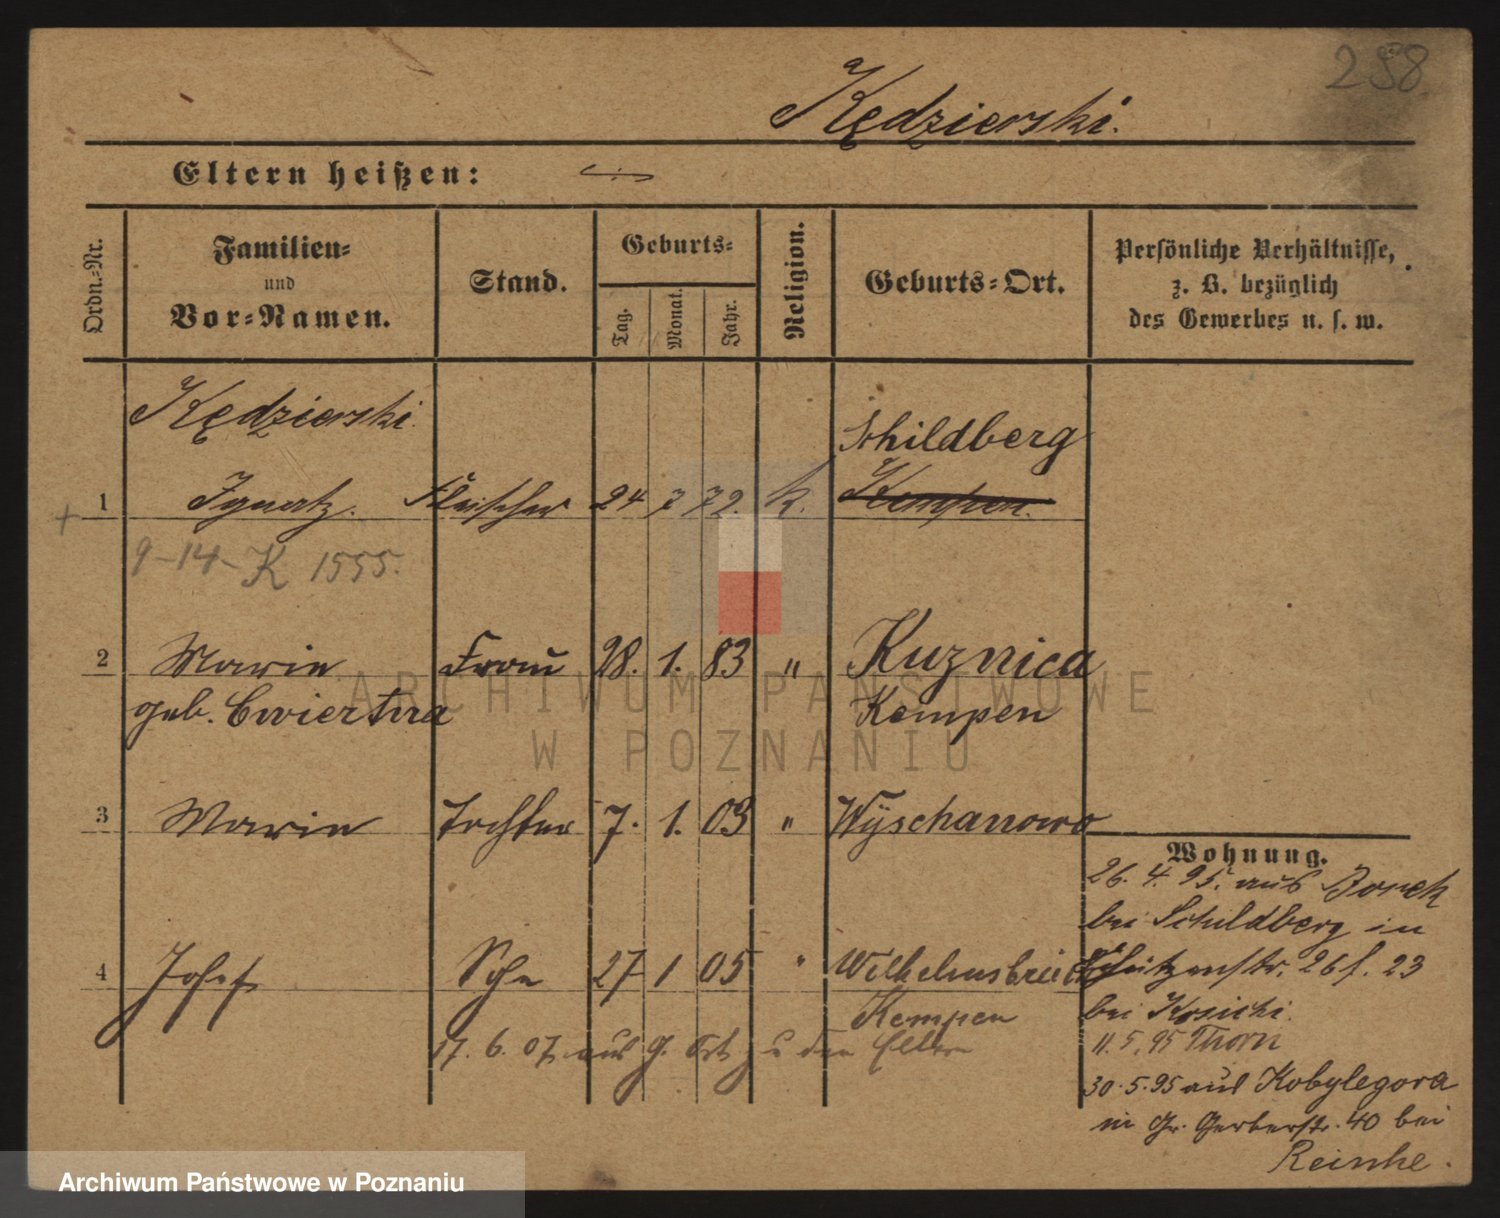 258
Kędzierski.
Eltern heißen:
Ordn.-Nr.
Familien-
und
Vor-Namen.
Stand.
Geburts-
Tag.
Monat.
Jahr.
Religion.
Geburts-Ort.
Persönliche Verhältnisse,
z. B. bezüglich
des Gewerbes u. s. w.
Kędzierski
Schildberg
1 Ignatz. Fleischer 24 7 72. k. Kempen.
9-14-K 1555.
2 Marie Frau 28. 1. 83 " Kuznica
geb. Cwiertnia Kempen
3 Marie Tochter 7. 1. 03 " Wyschanowo
4 Josef Sohn 27 1 05 " Wilhelmsbrück
Kempen
17. 6. 07 aus g. Ort z u den Eltern
Wohnung.
26. 4. 95. aus Borek
bei Schildberg in
Schützenstr. 26 f. 23
bei Kosicki.
11. 5. 95 Thorn
30. 5. 95 aus Kobylegora
in Gr. Gerberstr. 40 bei
Reinke.
ARCHIWUM PAŃSTWOWE
W POZNANIU
Archiwum Państwowe w Poznaniu